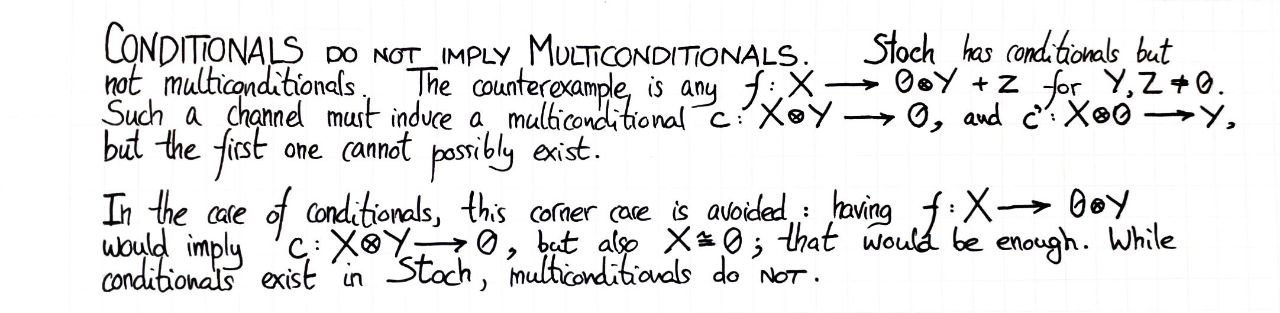 CONDITIONALS DO NOT IMPLY MULTICONDITIONALS. Stoch has conditionals but
not multiconditionals. The counterexample is any f: X → 0⊗Y + Z for Y,Z ≠ 0.
Such a channel must induce a multiconditional c: X⊗Y → 0, and c': X⊗0 → Y,
but the first one cannot possibly exist.
In the case of conditionals, this corner case is avoided: having f: X → 0⊗Y
would imply c: X⊗Y → 0, but also X ≅ 0; that would be enough. While
conditionals exist in Stoch, multiconditionals do NOT.